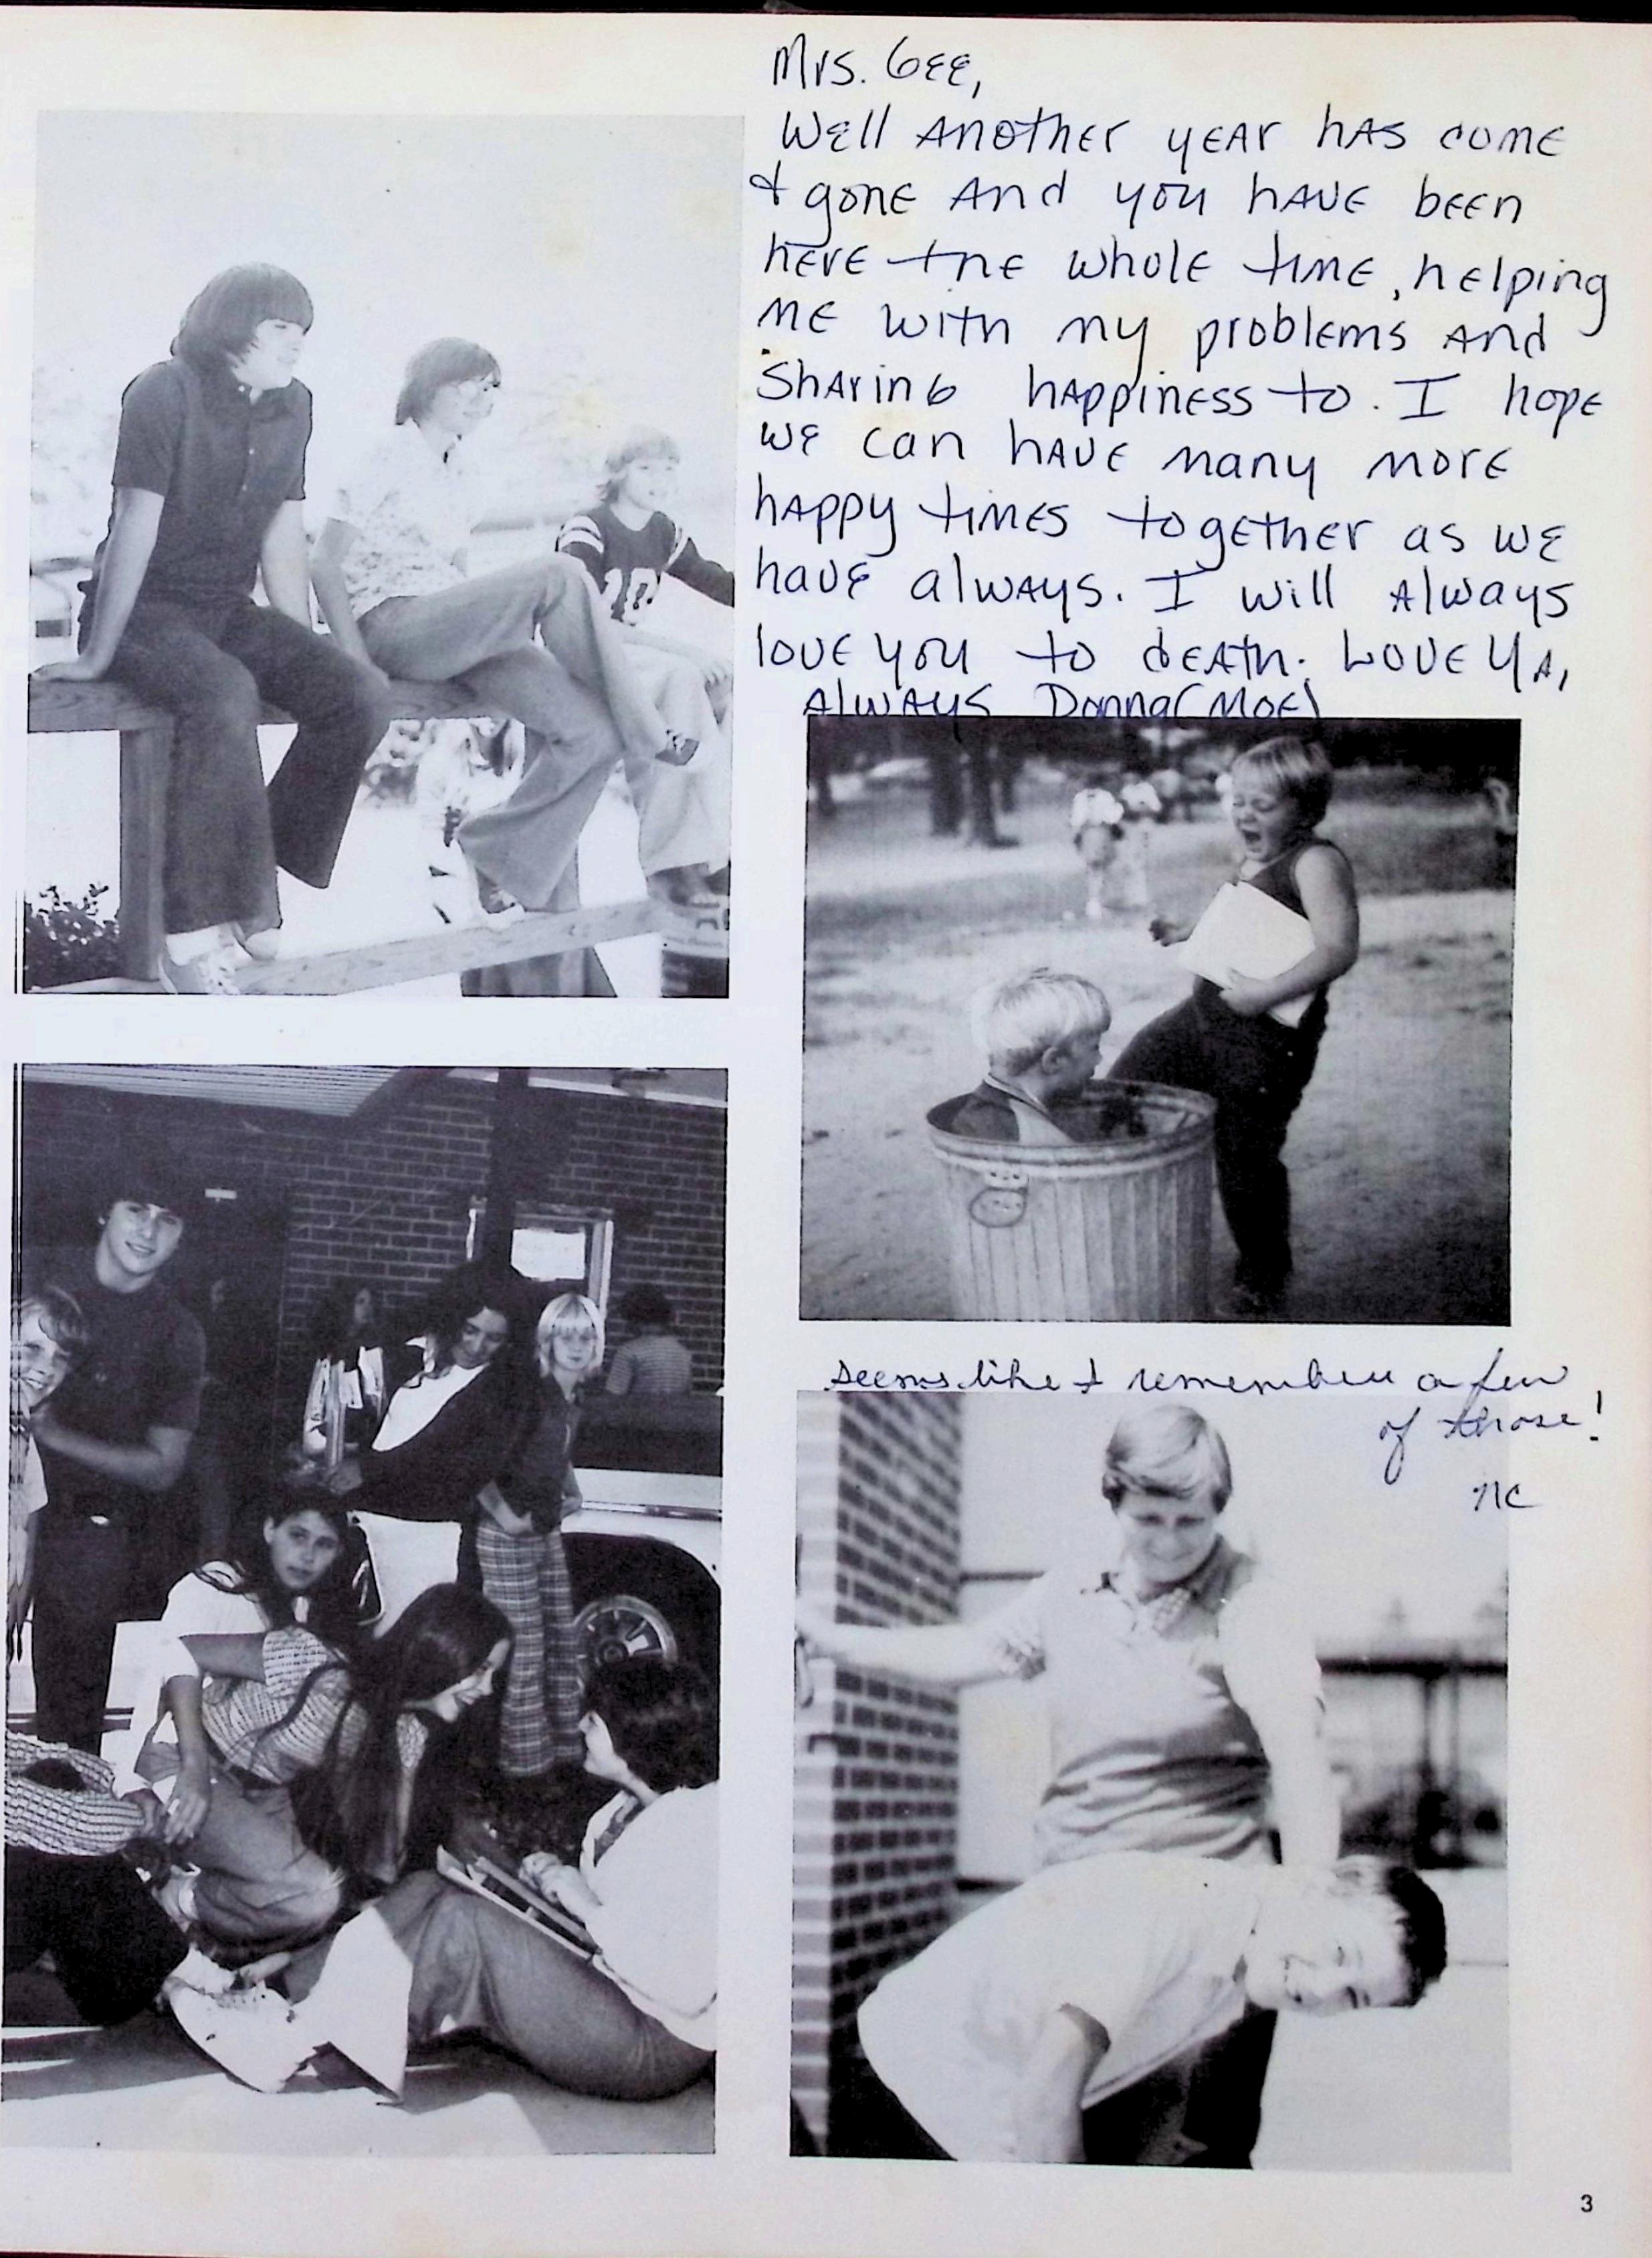 Mrs. Gee,
Well Another year has come
& gone And you have been
here the whole time, helping
me with my problems And
Sharing happiness to. I hope
we can have many more
happy times together as we
have always. I will Always
love you to death. Love Ya,
Always Donna (Moe)
seems like I remember a few
of those!
nc
3